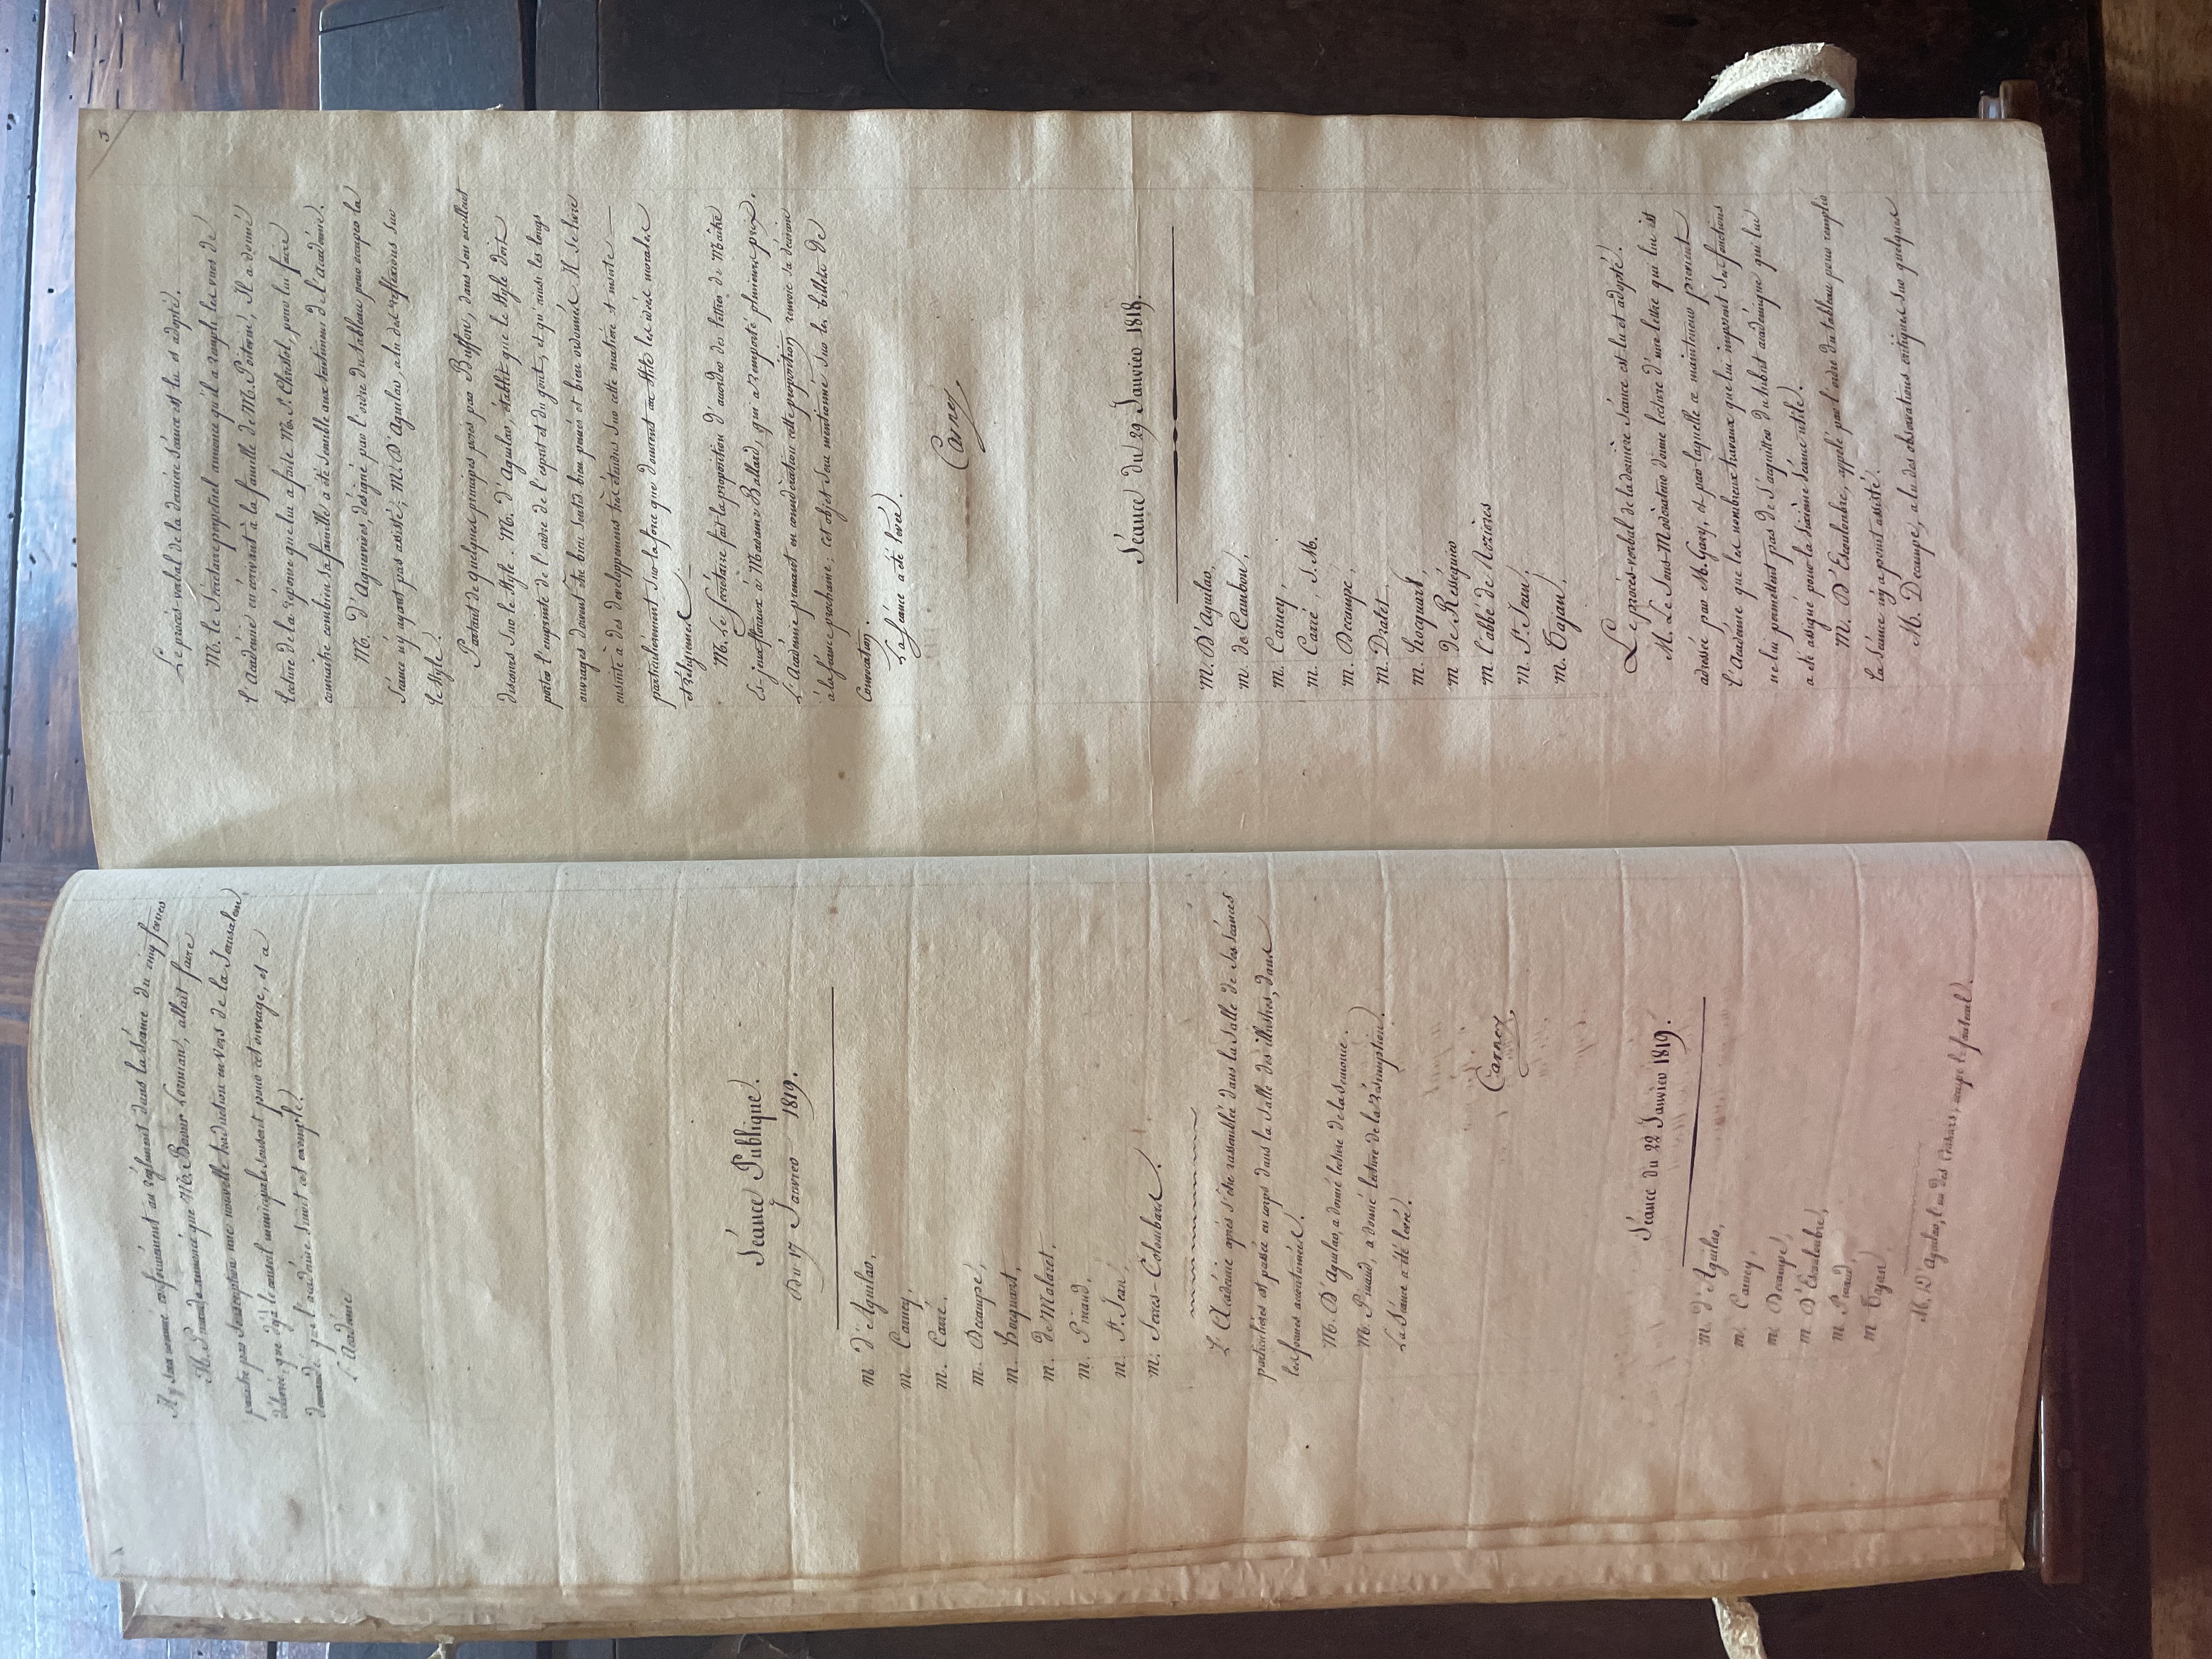 Il y sera nommé conformément au réglement dans la Séance du cinq fevrier
M. Pinaud a annoncé que M. Baour Lormian, allait faire
paraitre par Souscription une nouvelle traduction en vers de la Jerusalem
délivrée, que déjà le conseil municipal a souscrit pour cet ouvrage, et a
demandé que l'académie suivit cet exemple.
L'Académie
Séance Publique.
Du 17 Janvier 1819.
m. d'Aguilar,
m. Carney,
m. Carré.
m. Decampe,
m. hocquart,
m. de Malaret,
m. Pinaud,
m. St. Jean,
m. Serres-Colombars.
L'Académie après s'être rassemblée dans la Salle de ses Séances
particulières est passée en corps dans la Salle des illustres, dans
les formes accoutumées.
M. D'Aguilar, a donné lecture de la Semonce.
M. Pinaud, a donné lecture de la Rédemption.
La Séance a été levée.
Carney
Séance du 22 Janvier 1819.
m. d'Aguilar,
m. Carney,
m. Decampe,
m. D'Escaloubre,
m. Pinaud,
m. Tajan,
M. D'Aguilar, l'un des Censeurs, occupe le fauteuil.
3
Le procès-verbal de la dernière Séance est lu et adopté.
M. le Secrétaire perpétuel annonce qu'il a rempli les vues de
l'Académie en écrivant à la famille de M. Poitevin, il a donné
lecture de la réponse que lui a faite M. St. Christol, pour lui faire
connaitre combien sa famille a été sensible aux attentions de l'Académie.
M. d'Aiguesvives, désigné par l'ordre du tableau pour occuper la
Séance n'y ayant pas assisté; M. D'Aguilar, a lu des réflexions sur
le Style.
Partant de quelques principes posés par Buffon, dans son excellent
discours sur le Style. M. d'Aguilar, établit que le Style doit
porter l'empreinte de l'ordre de l'esprit et du gout, et qu'ainsi les longs
ouvrages doivent être bien sentis bien pensés et bien ordonnés. Il se livre
ensuite à des developpemens très étendus sur cette matière et insiste
particulièrement sur la force que donnent au Style les idées morales
et religieuses.
M. Le Secrétaire fait la proposition d'accorder des lettres de Maitre
Es-jeux floraux à Madame Ballard, qui a remporté plusieurs prix.
L'Académie prenant en considération cette proposition renvoie sa décision
à la Séance prochaine; cet objet sera mentionné sur les billets de
Convocation.
La Séance a été levée.
Carney
Séance du 29 Janvier 1818.
m. D'aguilar,
m. de Cambon,
m. Carney,
m. Carré, S. M.
m. Decampe,
m. Dralet,
m. hocquart,
m. de Rességuier
m. l'abbé de Rozières
m. St. Jean,
m. Tajan,
Le procès-verbal de la dernière Séance est lu et adopté.
M. Le Sous-Modérateur donne lecture d'une lettre qui lui est
adressée par M. Gary, et par laquelle ce mainteneur prévient
l'Académie que les nombreux travaux que lui imposent ses fonctions
ne lui permettent pas de s'acquitter du tribut académique qui lui
a été assigné pour la sixième Séance utile.
M. D'Escaloubre, appelé par l'ordre du tableau pour remplir
la Séance n'y a point assisté.
M. Decampe, a lu des observations critiques sur quelques